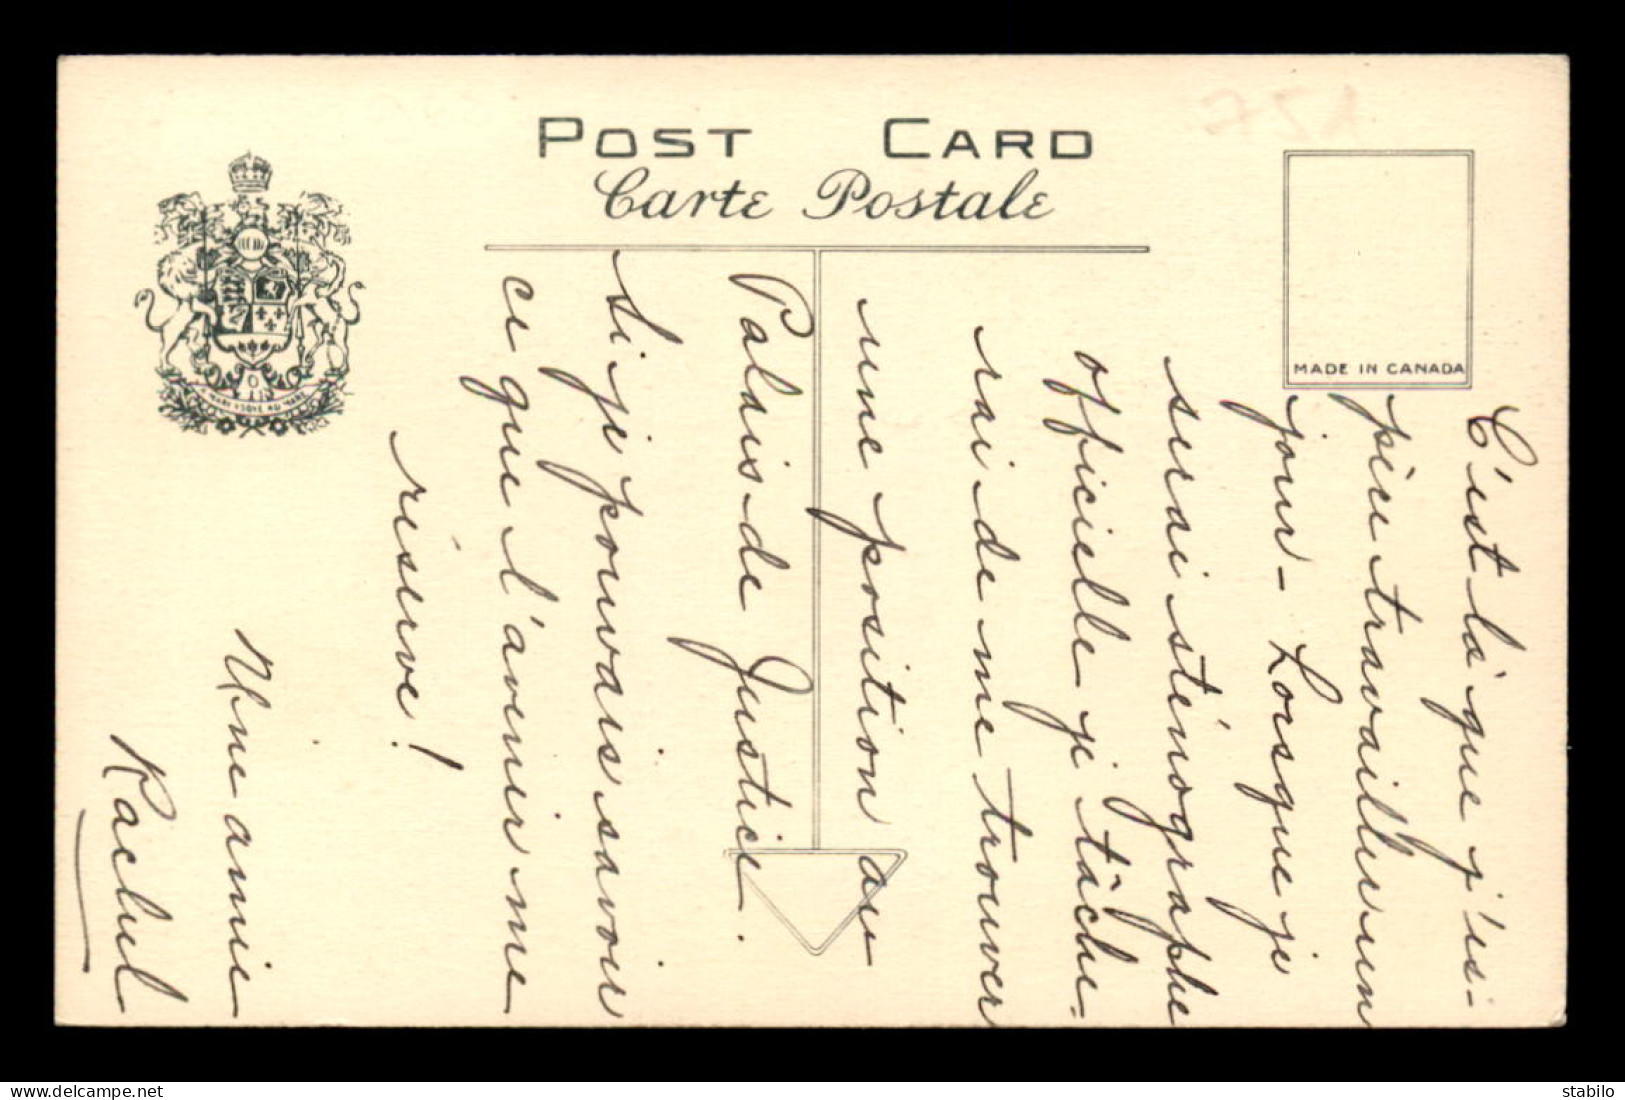 POST CARD
Carte Postale
MADE IN CANADA
C'est là que j'es-
père travailler un
jour - Lorsque je
serai sténographe
officielle je tâche-
rai de me trouver
une position au
Palais de Justice.
Si je pouvais savoir
ce que l'avenir me
réserve!
Une amie
Rachel
stabilo